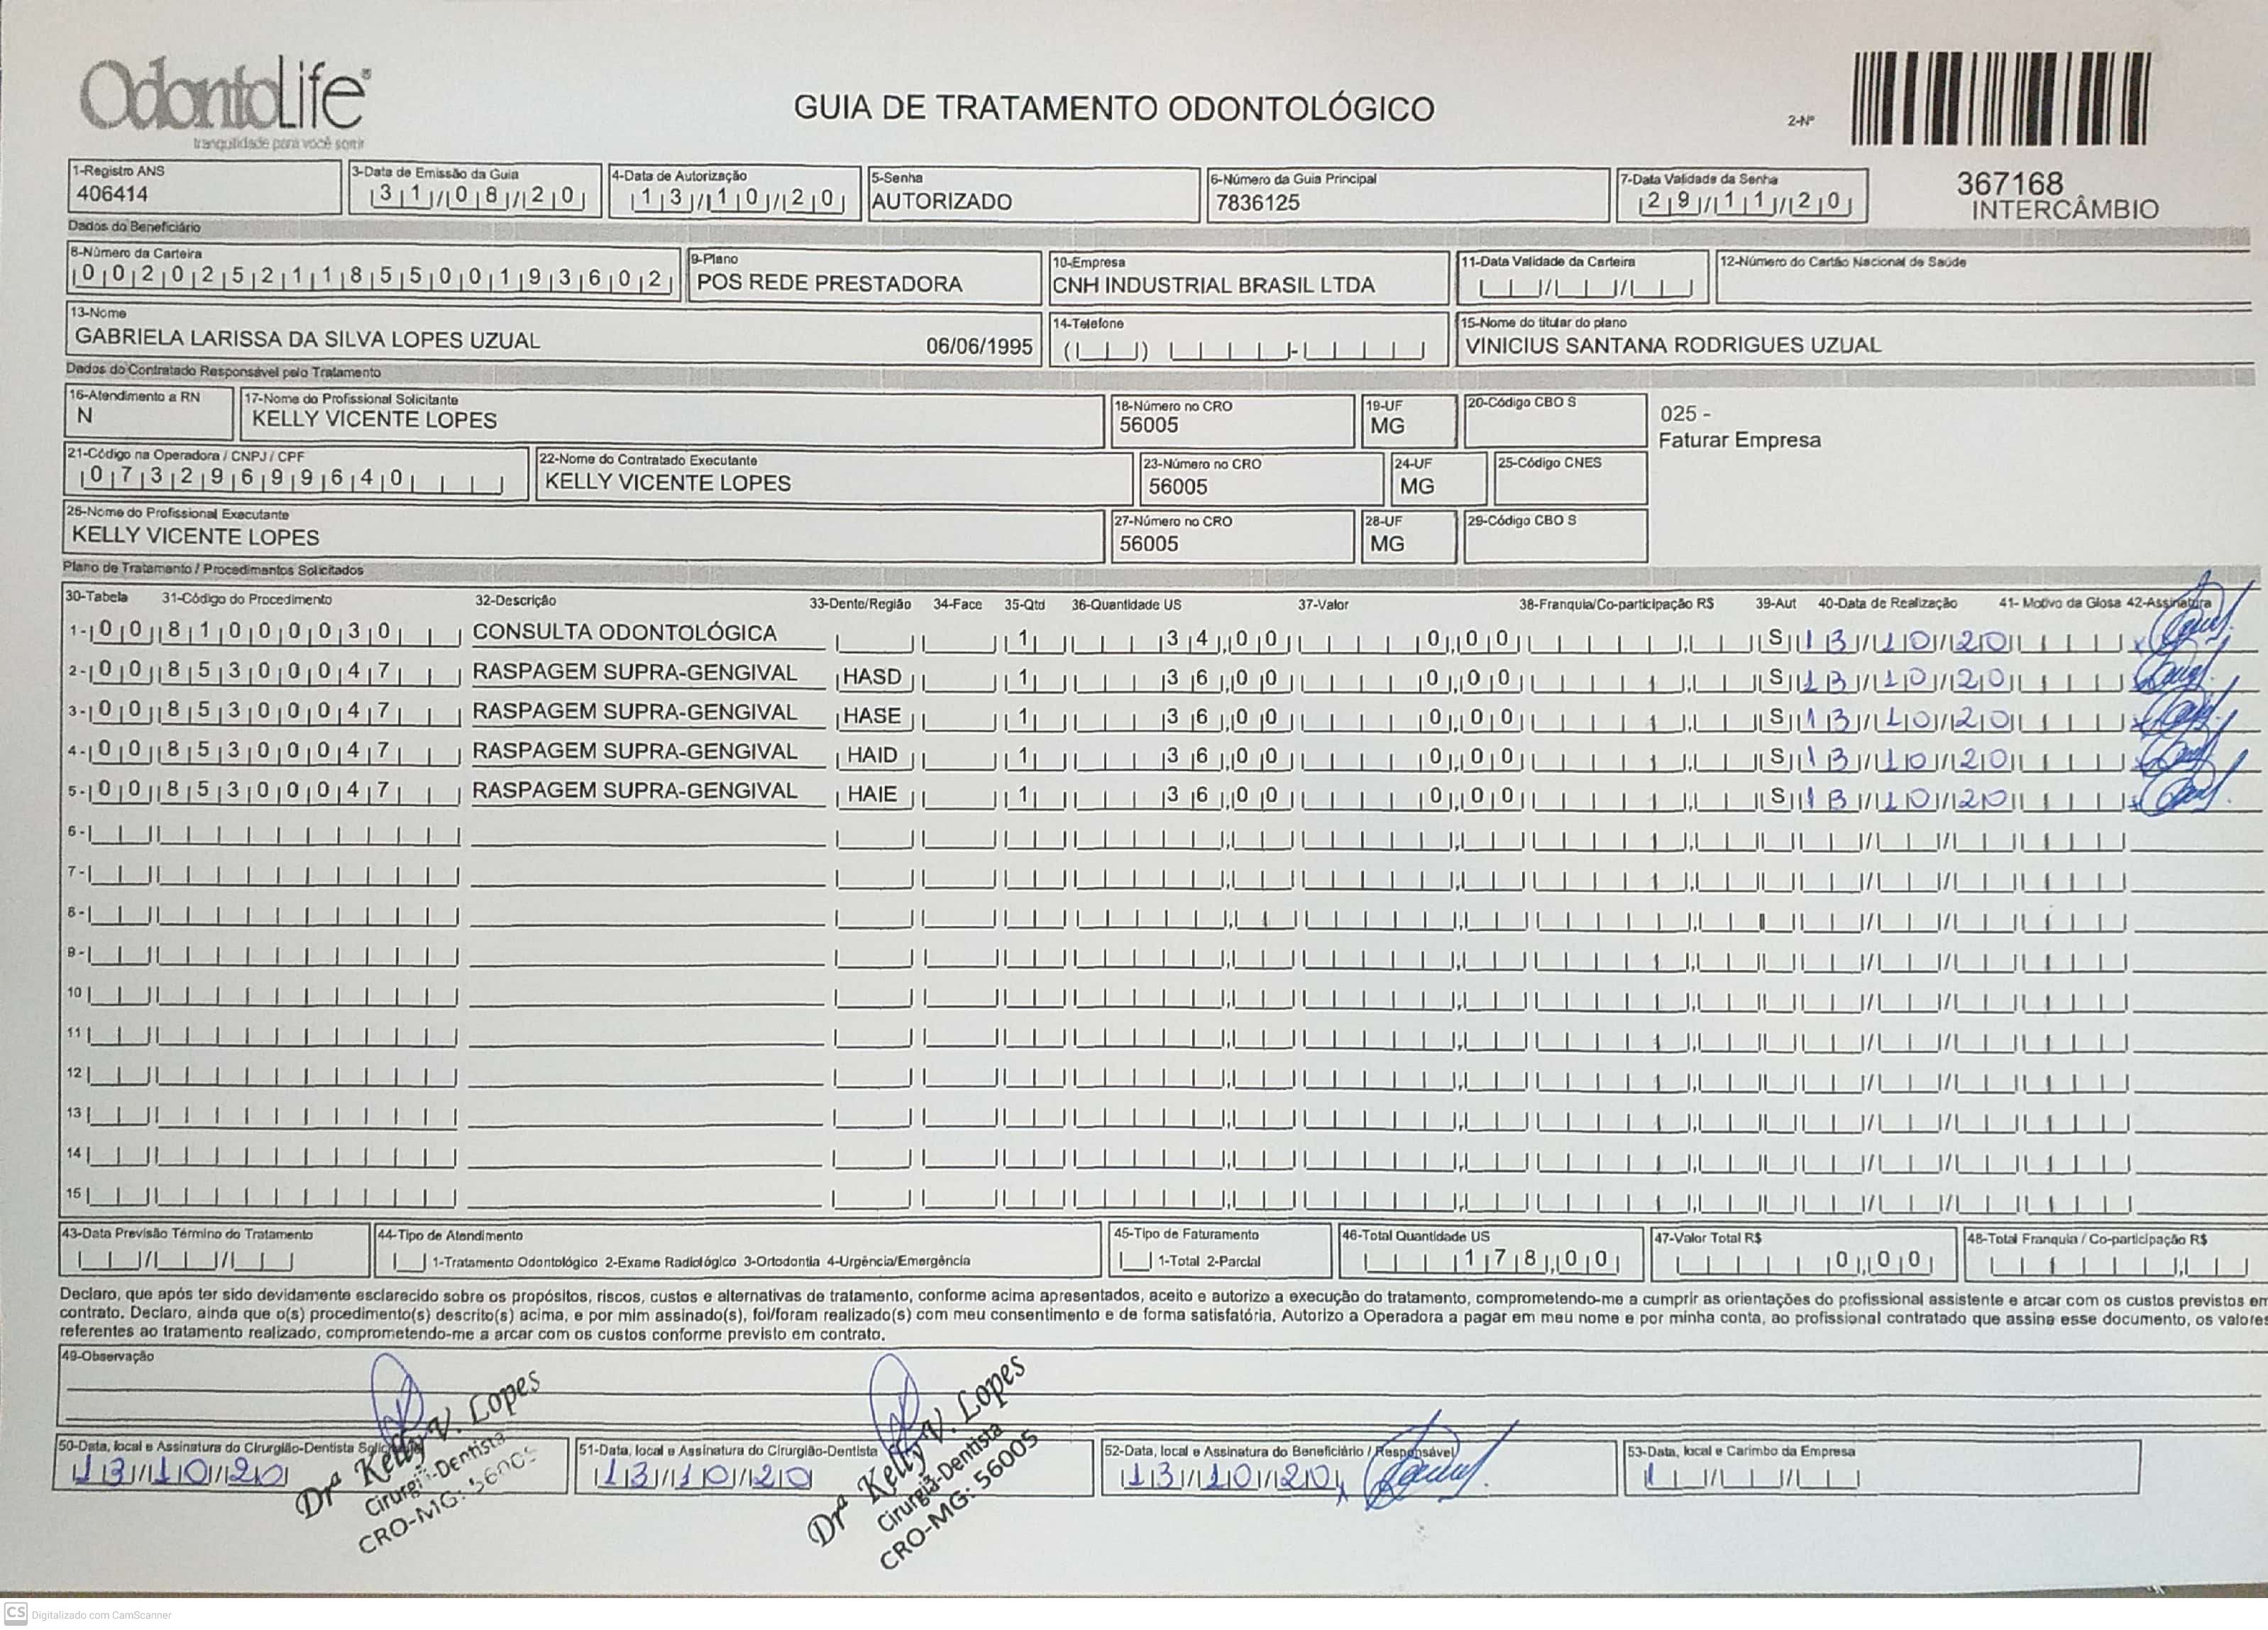 OdontoLife®
tranquilidade para você sorrir
GUIA DE TRATAMENTO ODONTOLÓGICO
2-Nº
367168
INTERCÂMBIO
1-Registro ANS
406414
3-Data de Emissão da Guia
31/08/20
4-Data de Autorização
13/10/20
5-Senha
AUTORIZADO
6-Número da Guia Principal
7836125
7-Data Validade da Senha
29/11/20
Dados do Beneficiário
8-Número da Carteira
00202521185500193602
9-Plano
POS REDE PRESTADORA
10-Empresa
CNH INDUSTRIAL BRASIL LTDA
11-Data Validade da Carteira
12-Número do Cartão Nacional de Saúde
13-Nome
GABRIELA LARISSA DA SILVA LOPES UZUAL 06/06/1995
14-Telefone
15-Nome do titular do plano
VINICIUS SANTANA RODRIGUES UZUAL
Dados do Contratado Responsável pelo Tratamento
16-Atendimento a RN
N
17-Nome do Profissional Solicitante
KELLY VICENTE LOPES
18-Número no CRO
56005
19-UF
MG
20-Código CBO S
025 -
Faturar Empresa
21-Código na Operadora / CNPJ / CPF
07329699640
22-Nome do Contratado Executante
KELLY VICENTE LOPES
23-Número no CRO
56005
24-UF
MG
25-Código CNES
26-Nome do Profissional Executante
KELLY VICENTE LOPES
27-Número no CRO
56005
28-UF
MG
29-Código CBO S
Plano de Tratamento / Procedimentos Solicitados
30-Tabela 31-Código do Procedimento 32-Descrição 33-Dente/Região 34-Face 35-Qtd 36-Quantidade US 37-Valor 38-Franquia/Co-participação R$ 39-Aut 40-Data de Realização 41- Motivo da Glosa 42-Assinatura
1- 00 81000030 CONSULTA ODONTOLÓGICA 1 34,00 0,00 S 13/10/20
2- 00 85300047 RASPAGEM SUPRA-GENGIVAL HASD 1 36,00 0,00 S 13/10/20
3- 00 85300047 RASPAGEM SUPRA-GENGIVAL HASE 1 36,00 0,00 S 13/10/20
4- 00 85300047 RASPAGEM SUPRA-GENGIVAL HAID 1 36,00 0,00 S 13/10/20
5- 00 85300047 RASPAGEM SUPRA-GENGIVAL HAIE 1 36,00 0,00 S 13/10/20
6-
7-
8-
9-
10
11
12
13
14
15
43-Data Previsão Término do Tratamento
44-Tipo de Atendimento
1-Tratamento Odontológico 2-Exame Radiológico 3-Ortodontia 4-Urgência/Emergência
45-Tipo de Faturamento
1-Total 2-Parcial
46-Total Quantidade US
178,00
47-Valor Total R$
0,00
48-Total Franquia / Co-participação R$
Declaro, que após ter sido devidamente esclarecido sobre os propósitos, riscos, custos e alternativas de tratamento, conforme acima apresentados, aceito e autorizo a execução do tratamento, comprometendo-me a cumprir as orientações do profissional assistente e arcar com os custos previstos em
contrato. Declaro, ainda que o(s) procedimento(s) descrito(s) acima, e por mim assinado(s), foi/foram realizado(s) com meu consentimento e de forma satisfatória. Autorizo a Operadora a pagar em meu nome e por minha conta, ao profissional contratado que assina esse documento, os valores
referentes ao tratamento realizado, comprometendo-me a arcar com os custos conforme previsto em contrato.
49-Observação
50-Data, local e Assinatura do Cirurgião-Dentista Solicitante
13/10/20
Drª Kelly V. Lopes
Cirurgiã-Dentista
CRO-MG: 56005
51-Data, local e Assinatura do Cirurgião-Dentista
13/10/20
Drª Kelly V. Lopes
Cirurgiã-Dentista
CRO-MG: 56005
52-Data, local e Assinatura do Beneficiário / Responsável
13/10/20
53-Data, local e Carimbo da Empresa
CS Digitalizado com CamScanner